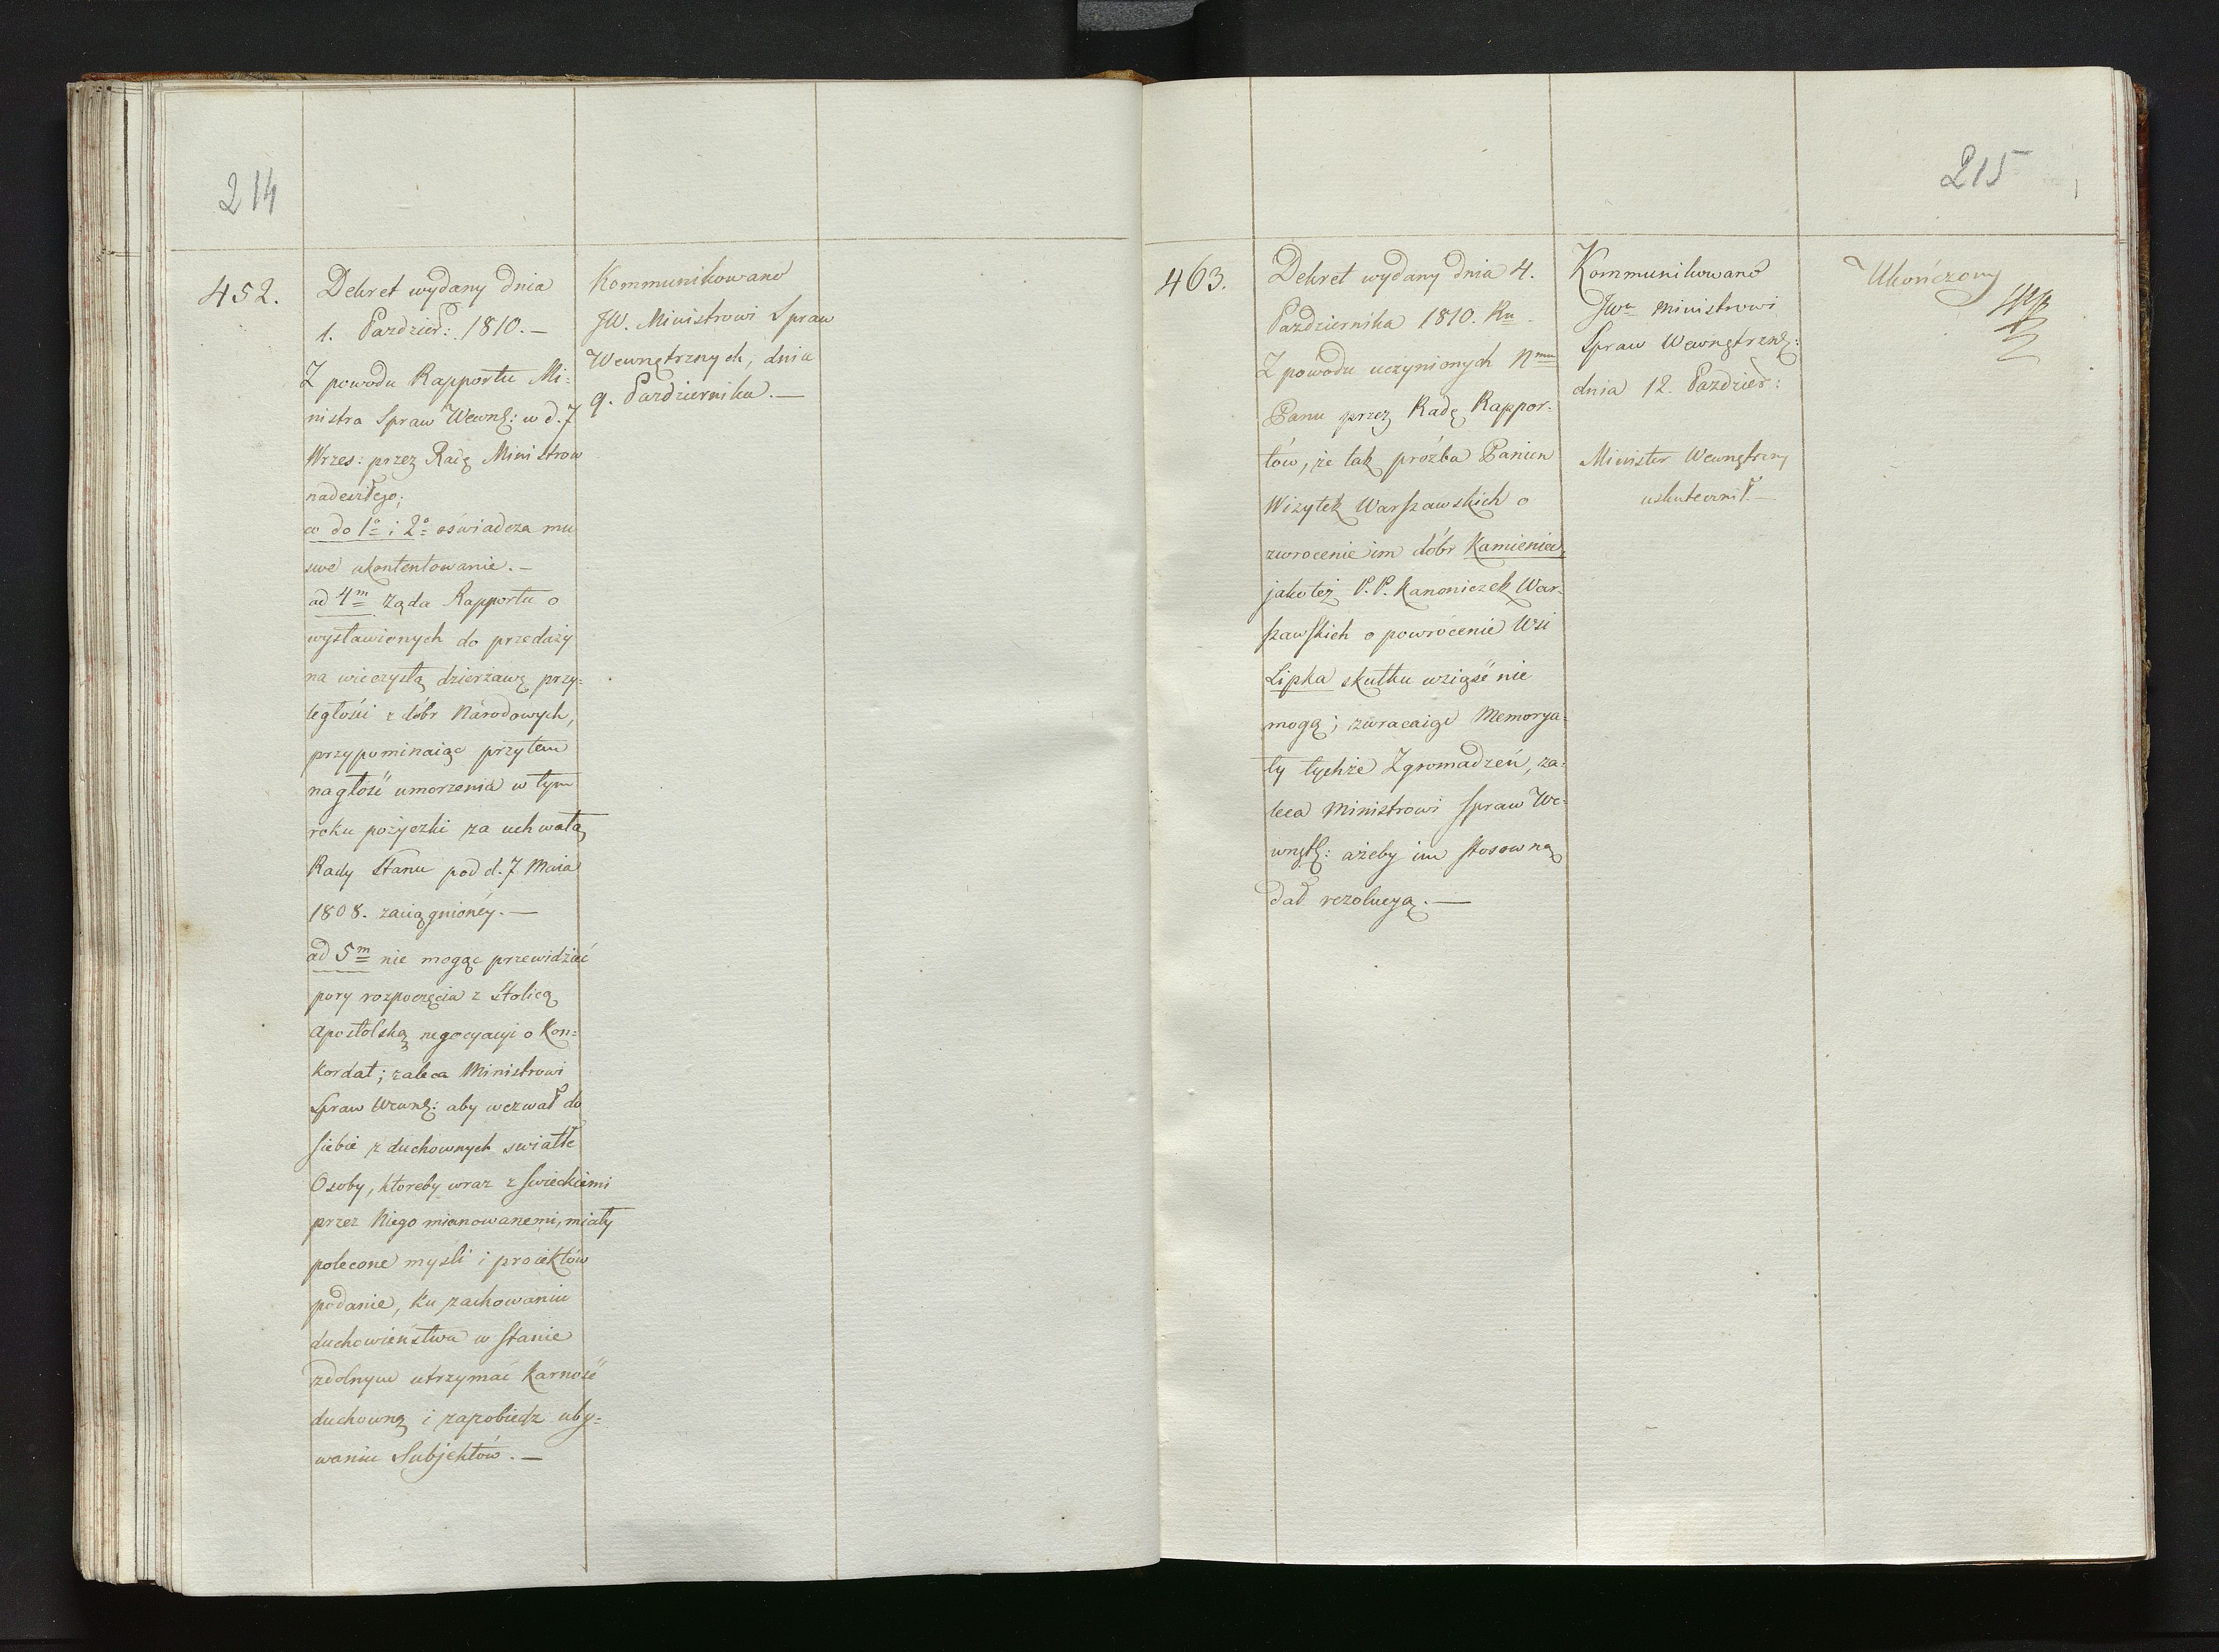 214
452.
Dekret wydany dnia
1. Paździer: 1810. —
Z powodu Rapportu Mi:
nistra Spraw Wewnę: w d. 7
Wrzes: przez Radę Ministrow
nadesłłego;
co do 1º i 2º oświadcza mu
swe ukontentowanie. —
ad 4m Żąda Rapportu o
wystawionych do przedaży
na wieczystą dzierżawę przy=
ległości z dóbr Narodowych,
przypominaiąc przytem
nagłość umorzenia w tym
roku pożyczki za uchwałą
Rady Stanu pod d. 7 Maia
1808. zaciągnioney. —
ad 5m nie mogąc przewidzieć
pory rozpoczęcia z Stolicą
Apostolską negocyacyi o Kon=
kordat; zaleca Ministrowi
Spraw Wewnę: aby wezwał do
siebie z duchownych swiatłe
Osoby, ktoreby wraz z swieckiemi
przez Niego mianowanemi, miały
polecone myśli i proiektów
podanie, ku zachowaniu
duchowieństwa w stanie
zdolnym utrzymać karność
duchowną i zapobiedz uby=
waniu Subjektów. —
Kommunikowano
JW. Ministrowi Spraw
Wewnętrznych, dnia
9. Pazdziernika. —
215
463.
Dekret wydany dnia 4.
Pazdziernika 1810. Ru
Z powodu uczynionych Nmu
Panu przez Radę Rappor=
tów, że tak prozba Panien
Wizytek Warszawskich o
zwrocenie im dóbr Kamienia,
jako też P. P. Kanoniczek War=
szawskich o powrocenie Wsi
Lipka skutku wziąść nie
mogą; zwracaiąc Memorya=
ły tychże Zgromadzeń, za=
leca Ministrowi Spraw We=
wnętę: ażeby im stosowną
dał rezolucyą. —
Kommunikowano
JWu Ministrowi
Spraw Wewnętrznę:
dnia 12. Pazdzier:
Minister Wewnętrzny
uskutecznił. —
Ukończony